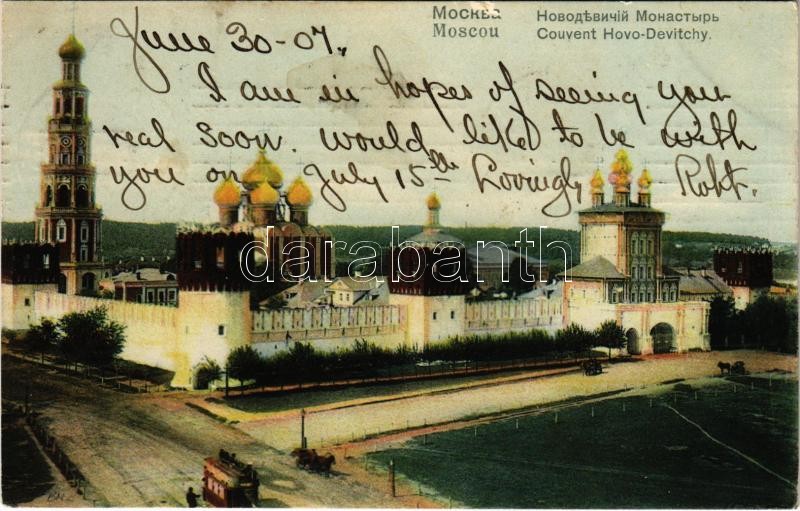 Москва
Moscou
Новодѣвичій Монастырь
Couvent Hovo-Devitchy.
June 30-07.
I am in hopes of seeing your
real soon. would like to be with
you on July 15th Lovingly Robt.
darabanth